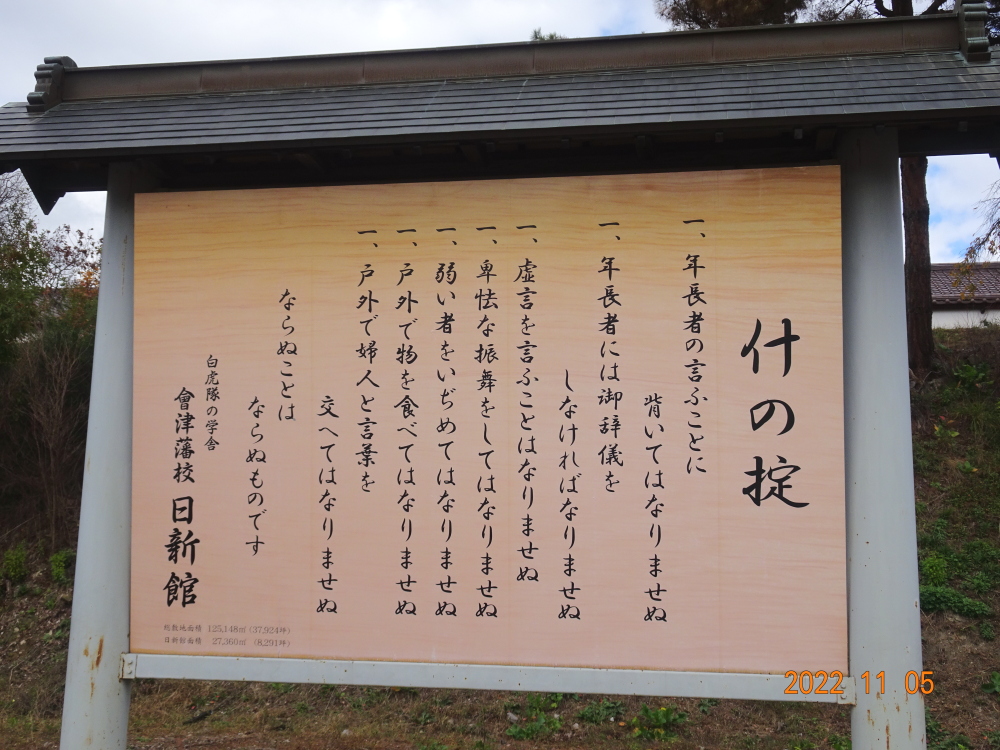 什の掟
一、年長者の言ふことに
背いてはなりませぬ
一、年長者には御辞儀を
しなければなりませぬ
一、虚言を言ふことはなりませぬ
一、卑怯な振舞をしてはなりませぬ
一、弱い者をいぢめてはなりませぬ
一、戸外で物を食べてはなりませぬ
一、戸外で婦人と言葉を
交へてはなりませぬ
ならぬことは
ならぬものです
白虎隊の学舎
會津藩校 日新館
総敷地面積 125,148㎡ (37,924坪)
日新館面積 27,360㎡ (8,291坪)
2022 11 05